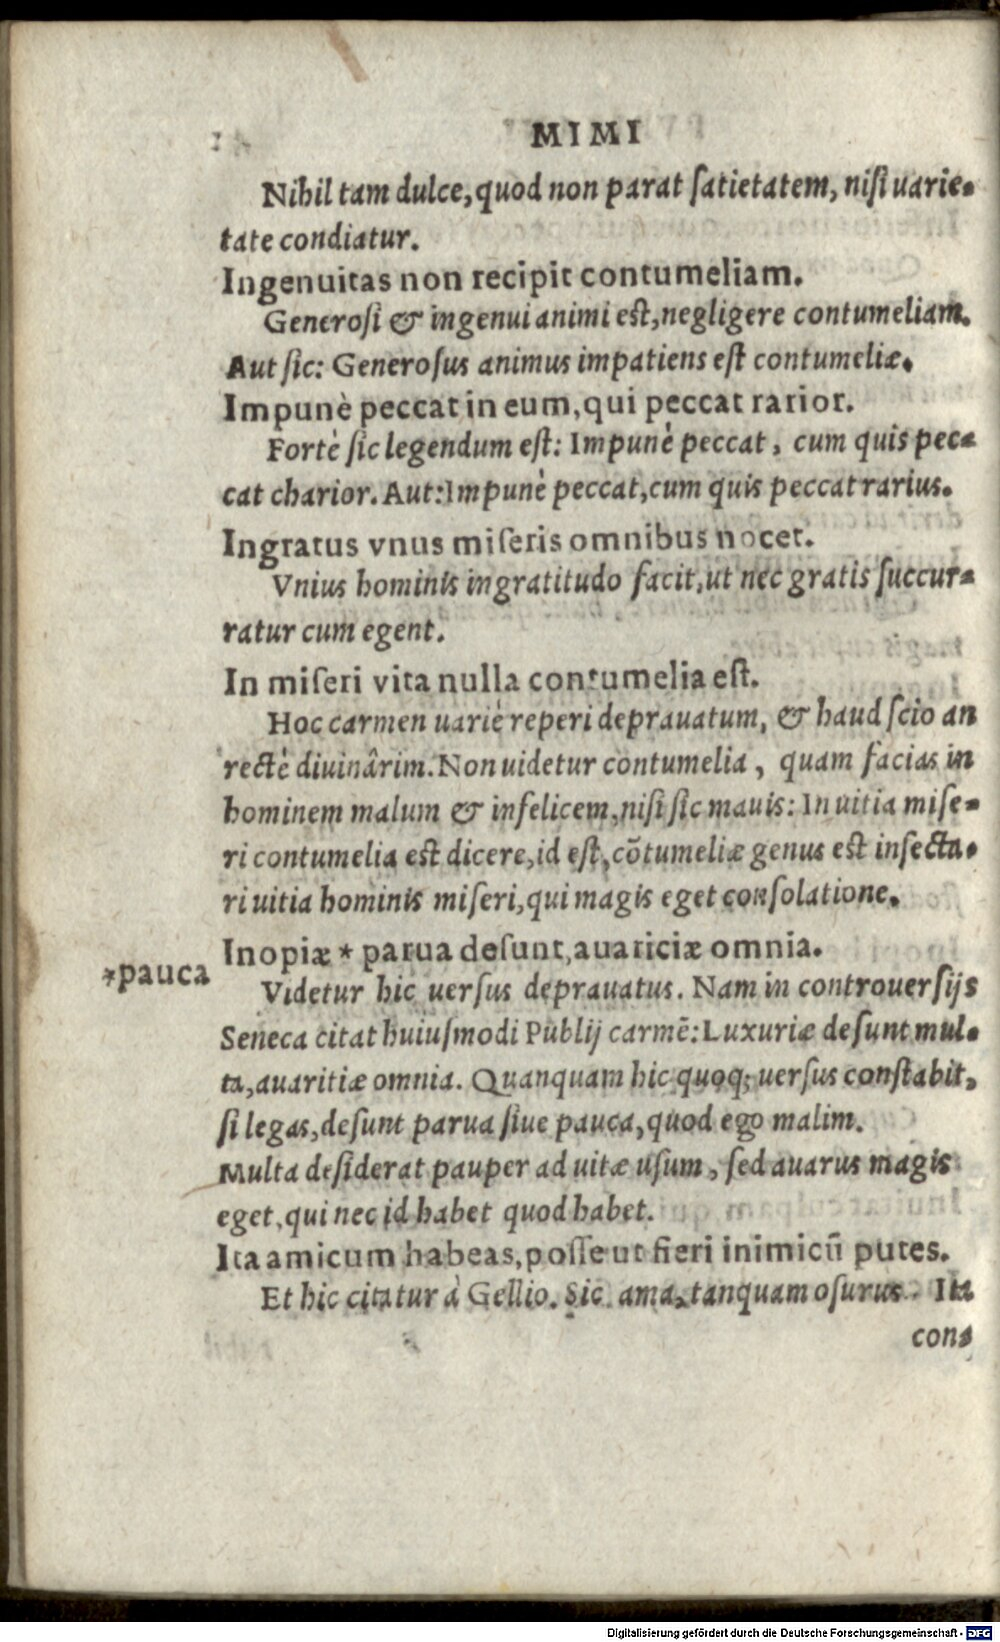 MIMI
Nihil tam dulce, quod non parat ſatietatem, niſi uarie-
tate condiatur.
Ingenuitas non recipit contumeliam.
Generoſi & ingenui animi eſt, negligere contumeliam.
Aut ſic: Generoſus animus impatiens eſt contumeliæ.
Impunè peccat in eum, qui peccat rarior.
Fortè ſic legendum eſt: Impunè peccat, cum quis pec-
cat charior. Aut: Impunè peccat, cum quis peccat rarius.
Ingratus vnus miſeris omnibus nocet.
Vnius hominis ingratitudo facit, ut nec gratis ſuccur-
ratur cum egent.
In miſeri vita nulla contumelia eſt.
Hoc carmen uariè reperi deprauatum, & haud ſcio an
rectè diuinârim. Non uidetur contumelia, quam facias in
hominem malum & infelicem, niſi ſic mauis: In uitia miſe-
ri contumelia eſt dicere, id eſt, cõtumeliæ genus eſt inſecta-
ri uitia hominis miſeri, qui magis eget conſolatione.
Inopiæ * parua deſunt, auariciæ omnia.
*pauca
Videtur hic uerſus deprauatus. Nam in controuerſijs
Seneca citat huiuſmodi Publij carmẽ: Luxuriæ deſunt mul-
ta, auaritiæ omnia. Quanquam hic quoq; uerſus conſtabit,
ſi legas, deſunt parua ſiue pauca, quod ego malim.
Multa deſiderat pauper ad uitæ uſum, ſed auarus magis
eget, qui nec id habet quod habet.
Ita amicum habeas, poſſe ut fieri inimicũ putes.
Et hic citatur à Gellio. Sic ama, tanquam oſurus. Ita
con-
Digitalisierung gefördert durch die Deutsche Forschungsgemeinschaft - DFG